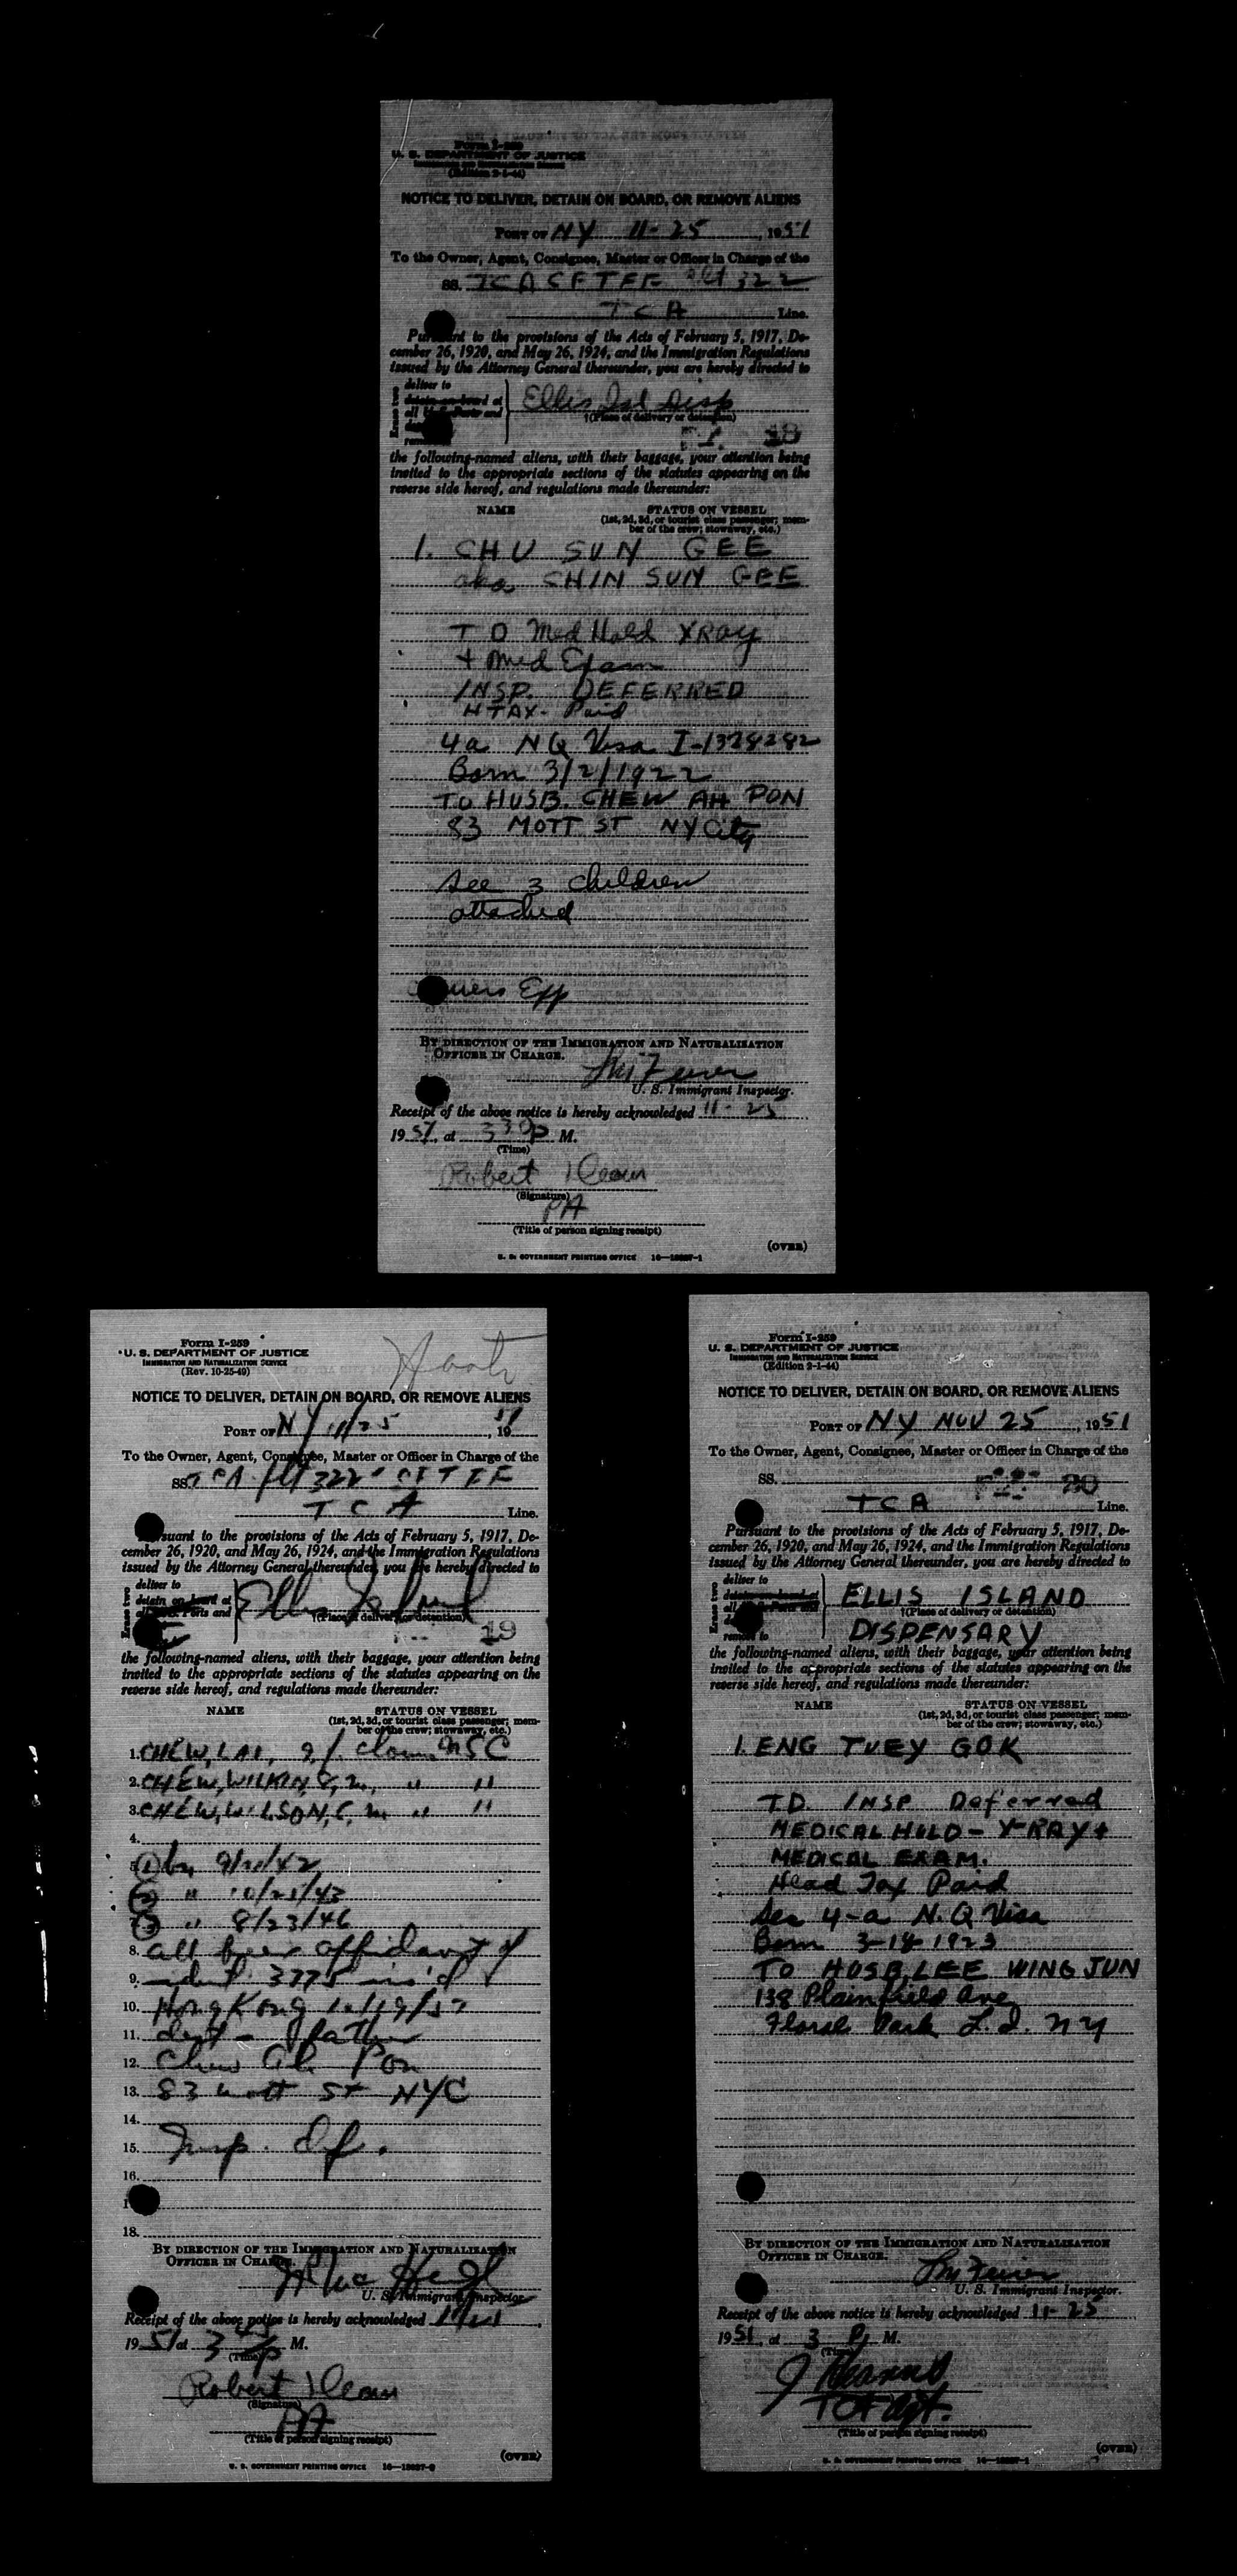 Form I-259
U. S. DEPARTMENT OF JUSTICE
IMMIGRATION AND NATURALIZATION SERVICE
(Edition 2-1-44)
NOTICE TO DELIVER, DETAIN ON BOARD, OR REMOVE ALIENS
PORT OF NY 11-25, 1951
To the Owner, Agent, Consignee, Master or Officer in Charge of the
SS. TCA CFTFF 322
TCA Line.
Pursuant to the provisions of the Acts of February 5, 1917, De-
cember 26, 1920, and May 26, 1924, and the Immigration Regulations
issued by the Attorney General thereunder, you are hereby directed to
Erase two
deliver to
detain on board at
all
Ports and
Ellis Isl Disp
†(Place of delivery or detention)
18
the following-named aliens, with their baggage, your attention being
invited to the appropriate sections of the statutes appearing on the
reverse side hereof, and regulations made thereunder:
NAME STATUS ON VESSEL
(1st, 2d, 3d, or tourist class passenger; mem-
ber of the crew; stowaway, etc.)
1. CHU SUN GEE
aka CHIN SUN GEE
TD Med Hold XRay
+ Med Exam
INSP. DEFERRED
H TAX- Paid
4a NQ Visa I-1328282
Born 3/2/1922
TO HUSB. CHEW AH PON
83 MOTT ST NY City
See 3 children
attached
BY DIRECTION OF THE IMMIGRATION AND NATURALIZATION
OFFICER IN CHARGE.
U. S. Immigrant Inspector.
Receipt of the above notice is hereby acknowledged 11-25
1951, at 330 P M.
(Time)
Robert
(Signature)
PA
(Title of person signing receipt)
(OVER)
U. S. GOVERNMENT PRINTING OFFICE 16—18527-1
Form I-259
U. S. DEPARTMENT OF JUSTICE
IMMIGRATION AND NATURALIZATION SERVICE
(Rev. 10-25-49)
NOTICE TO DELIVER, DETAIN ON BOARD, OR REMOVE ALIENS
PORT OF NY 11/25, 1951
To the Owner, Agent, Consignee, Master or Officer in Charge of the
SS. TCA flt 322 CFTFF
TCA Line.
Pursuant to the provisions of the Acts of February 5, 1917, De-
cember 26, 1920, and May 26, 1924, and the Immigration Regulations
issued by the Attorney General thereunder, you are hereby directed to
Erase two
deliver to
detain on board at
all Ports and
Ellis Island
†(Place of delivery or detention)
19
the following-named aliens, with their baggage, your attention being
invited to the appropriate sections of the statutes appearing on the
reverse side hereof, and regulations made thereunder:
NAME STATUS ON VESSEL
(1st, 2d, 3d, or tourist class passenger; mem-
ber of the crew; stowaway, etc.)
1. CHEW, LAI, 9, f. claim USC
2. CHEW, WILKIN, 8, m, " "
3. CHEW, WILSON, 5, m " "
4.
5. (1) bn 9/21/42
(2) " 10/21/43
(3) " 8/23/46
8. all have affidavit of
9. ident 3775 iss'd
10. Hong Kong
11. dest - father
12. Chew Ah Pon
13. 83 Mott St NYC
14.
15. Insp. Def.
16.
18.
BY DIRECTION OF THE IMMIGRATION AND NATURALIZATION
OFFICER IN CHARGE.
U. S. Immigrant Inspector
Receipt of the above notice is hereby acknowledged
1951 at 3 P M.
(Time)
Robert
(Signature)
PA
(Title of person signing receipt)
(OVER)
U. S. GOVERNMENT PRINTING OFFICE
Form I-259
U. S. DEPARTMENT OF JUSTICE
IMMIGRATION AND NATURALIZATION SERVICE
(Edition 2-1-44)
NOTICE TO DELIVER, DETAIN ON BOARD, OR REMOVE ALIENS
PORT OF NY NOV 25, 1951
To the Owner, Agent, Consignee, Master or Officer in Charge of the
SS. 20
TCA Line.
Pursuant to the provisions of the Acts of February 5, 1917, De-
cember 26, 1920, and May 26, 1924, and the Immigration Regulations
issued by the Attorney General thereunder, you are hereby directed to
Erase two
deliver to
detain on board at
all
remove to
ELLIS ISLAND
†(Place of delivery or detention)
DISPENSARY
the following-named aliens, with their baggage, your attention being
invited to the appropriate sections of the statutes appearing on the
reverse side hereof, and regulations made thereunder:
NAME STATUS ON VESSEL
(1st, 2d, 3d, or tourist class passenger; mem-
ber of the crew; stowaway, etc.)
1. ENG TUEY GOK
T.D. INSP Deferred
MEDICAL HOLD - X-RAY +
MEDICAL EXAM.
Head Tax Paid
Sec 4-a N.Q Visa
Born 3-18-1923
TO HUSB, LEE WING JUN
138 Plainfield Ave
Floral Park L.I. NY
BY DIRECTION OF THE IMMIGRATION AND NATURALIZATION
OFFICER IN CHARGE.
U. S. Immigrant Inspector.
Receipt of the above notice is hereby acknowledged 11-25
1951, at 3 P. M.
(Time)
(Title of person signing receipt)
(OVER)
U. S. GOVERNMENT PRINTING OFFICE 16—18527-1